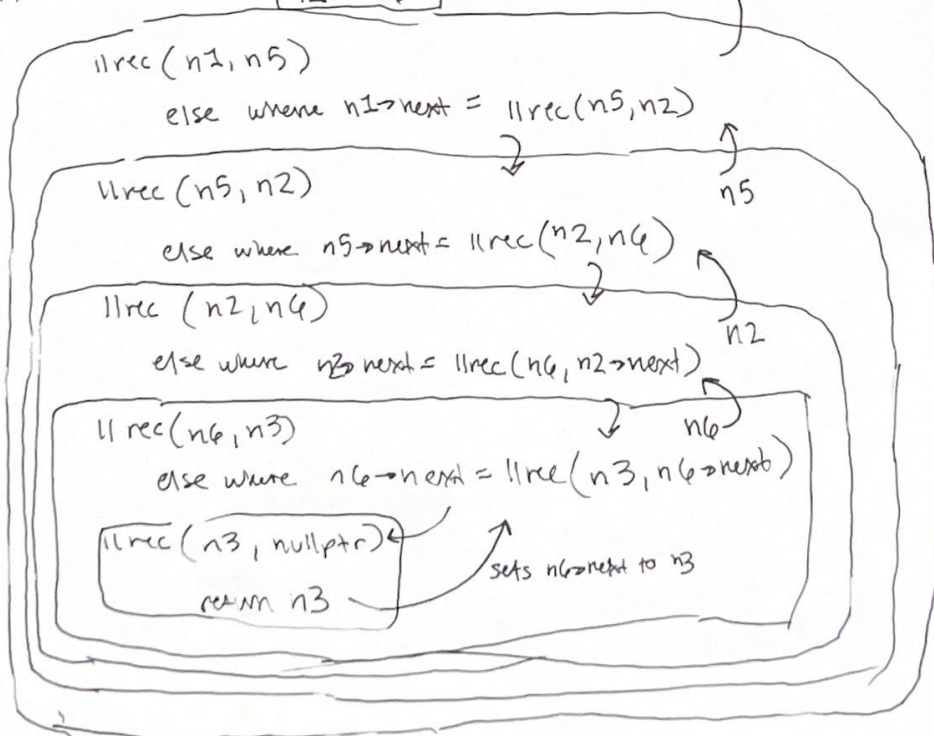 llrec(n1, n5)
else where n1->next = llrec(n5, n2)
n5
llrec(n5, n2)
else where n5->next = llrec(n2, n6)
n2
llrec (n2, n6)
else where next = llrec(n6, n2->next)
n6
llrec(n6, n3)
else where n6->next = llrec(n3, n6->next)
llrec(n3, nullptr)
sets n6->next to n3
return n3